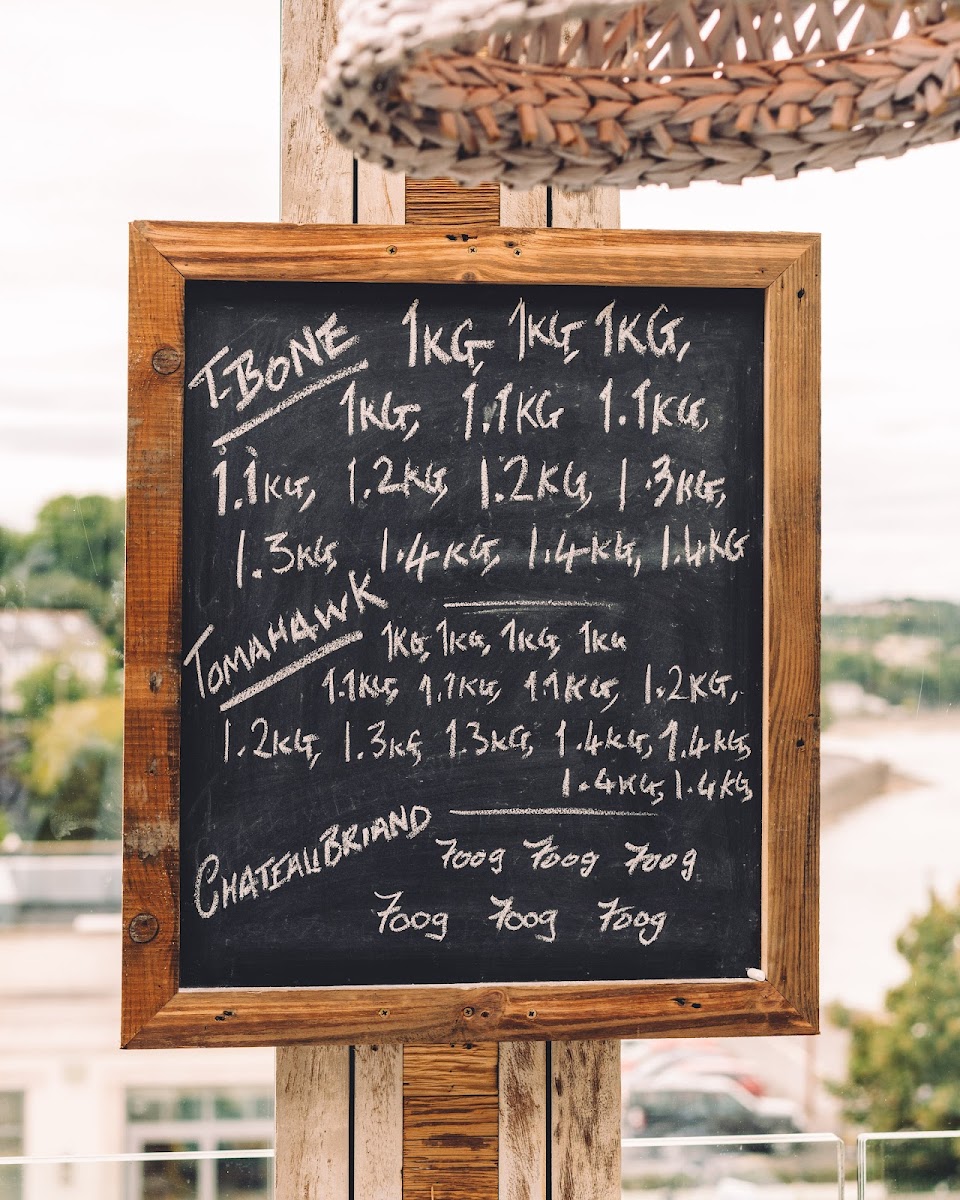 T-BONE 1KG, 1KG, 1KG,
1KG, 1.1KG 1.1KG,
1.1KG, 1.2KG, 1.2KG, 1.3KG,
1.3KG, 1.4KG, 1.4KG, 1.4KG
TOMAHAWK 1KG, 1KG, 1KG, 1KG
1.1KG, 1.1KG, 1.1KG, 1.2KG,
1.2KG, 1.3KG, 1.3KG, 1.4KG, 1.4KG,
1.4KG, 1.4KG,
CHATEAUBRIAND 700g 700g 700g
700g 700g 700g